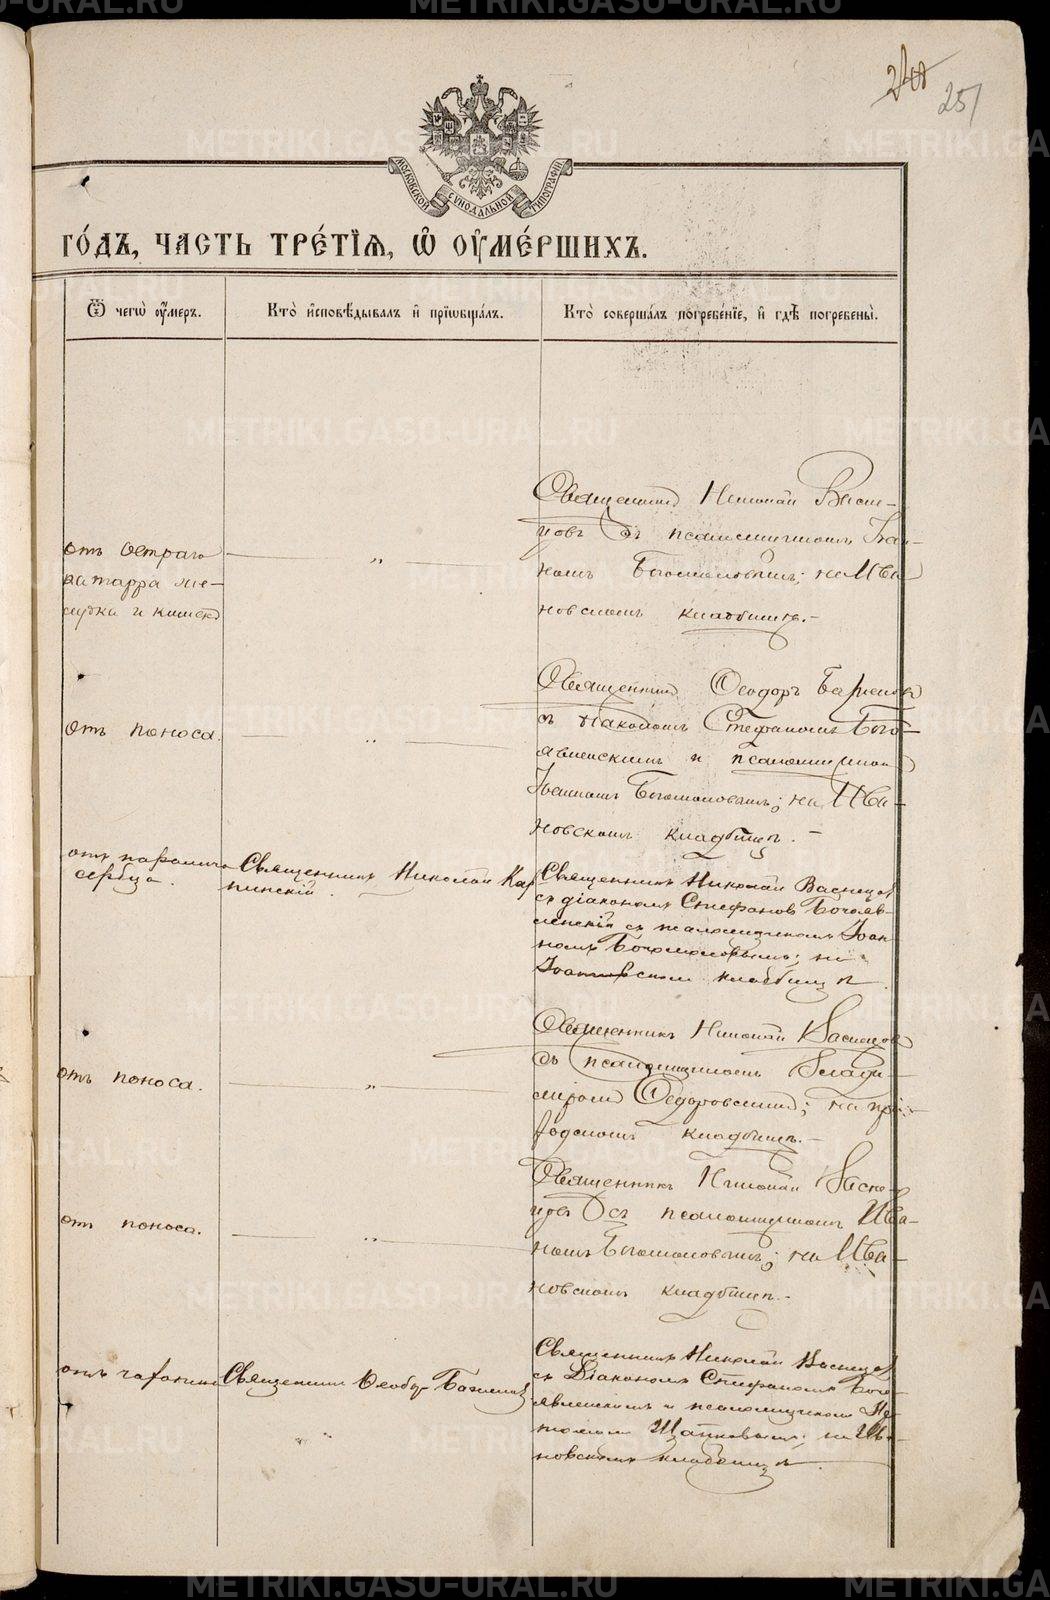 240
251
МОСКОВСКОЙ СѴНОДАЛЬНОЙ ТИПОГРАФІИ
ГО́ДЪ, ЧАСТЬ ТРЕ́ТІѦ, Ѡ҆ ОУ҆МЕ́РШИХЪ.
Ѿ чегѡ̀ оу҆́меръ.
Кто̀ и҆сповѣ́дывалъ и҆ прїѡбща́лъ.
Кто̀ соверша́лъ погребе́нїе, и҆ гдѣ̀ погребены̀.
отъ остраго
катарра же-
лудка и кишекъ
„
Священникъ Николай Васне-
цовъ съ псаломщикомъ Іоан-
номъ Богомоловымъ; на Ива
новскомъ кладбищѣ.-
отъ поноса.
„
Священникъ Ѳеодоръ
съ діакономъ Стефаномъ Бого-
явленскимъ и псаломщикомъ
Іоанномъ Богомоловымъ; на Ива-
новскомъ кладбищѣ. -
отъ паралича
сердца.
Священникъ Николай Кар
пинскій.
Священникъ Николай Васнецов
съ діакономъ Стефаномъ Богояв-
ленскій съ псаломщикомъ Іоан
номъ Богомоловымъ; на
Іоанновскомъ кладбищѣ.
отъ поноса.
„
Священникъ Николай Васнецовъ
съ псаломщикомъ Влади-
міромъ Федоровскимъ; на при-
ходскомъ кладбищѣ.-
отъ поноса.
„
Священникъ Николай Васне-
цовъ съ псаломщикомъ Ива-
номъ Богомоловымъ; на Ива-
новскомъ кладбищѣ.-
отъ чахотки
Священникъ Ѳеодоръ
Священникъ Николай Васнецов
съ Діакономъ Стефаномъ Бого-
явленскимъ и псаломщикомъ
на Ива-
новскомъ кладбищѣ.
METRIKI.GASO-URAL.RU